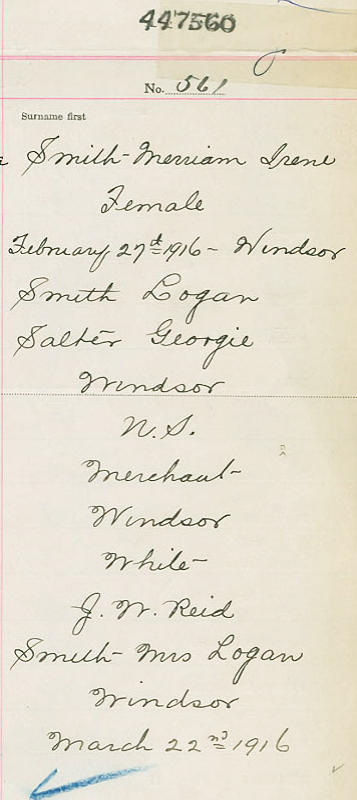 447560
No. 561
Surname first
Smith Merriam Irene
Female
February 27th 1916 - Windsor
Smith Logan
Salter Georgie
Windsor
N.S.
Merchant
Windsor
White
J. W. Reid
Smith Mrs Logan
Windsor
March 22nd 1916